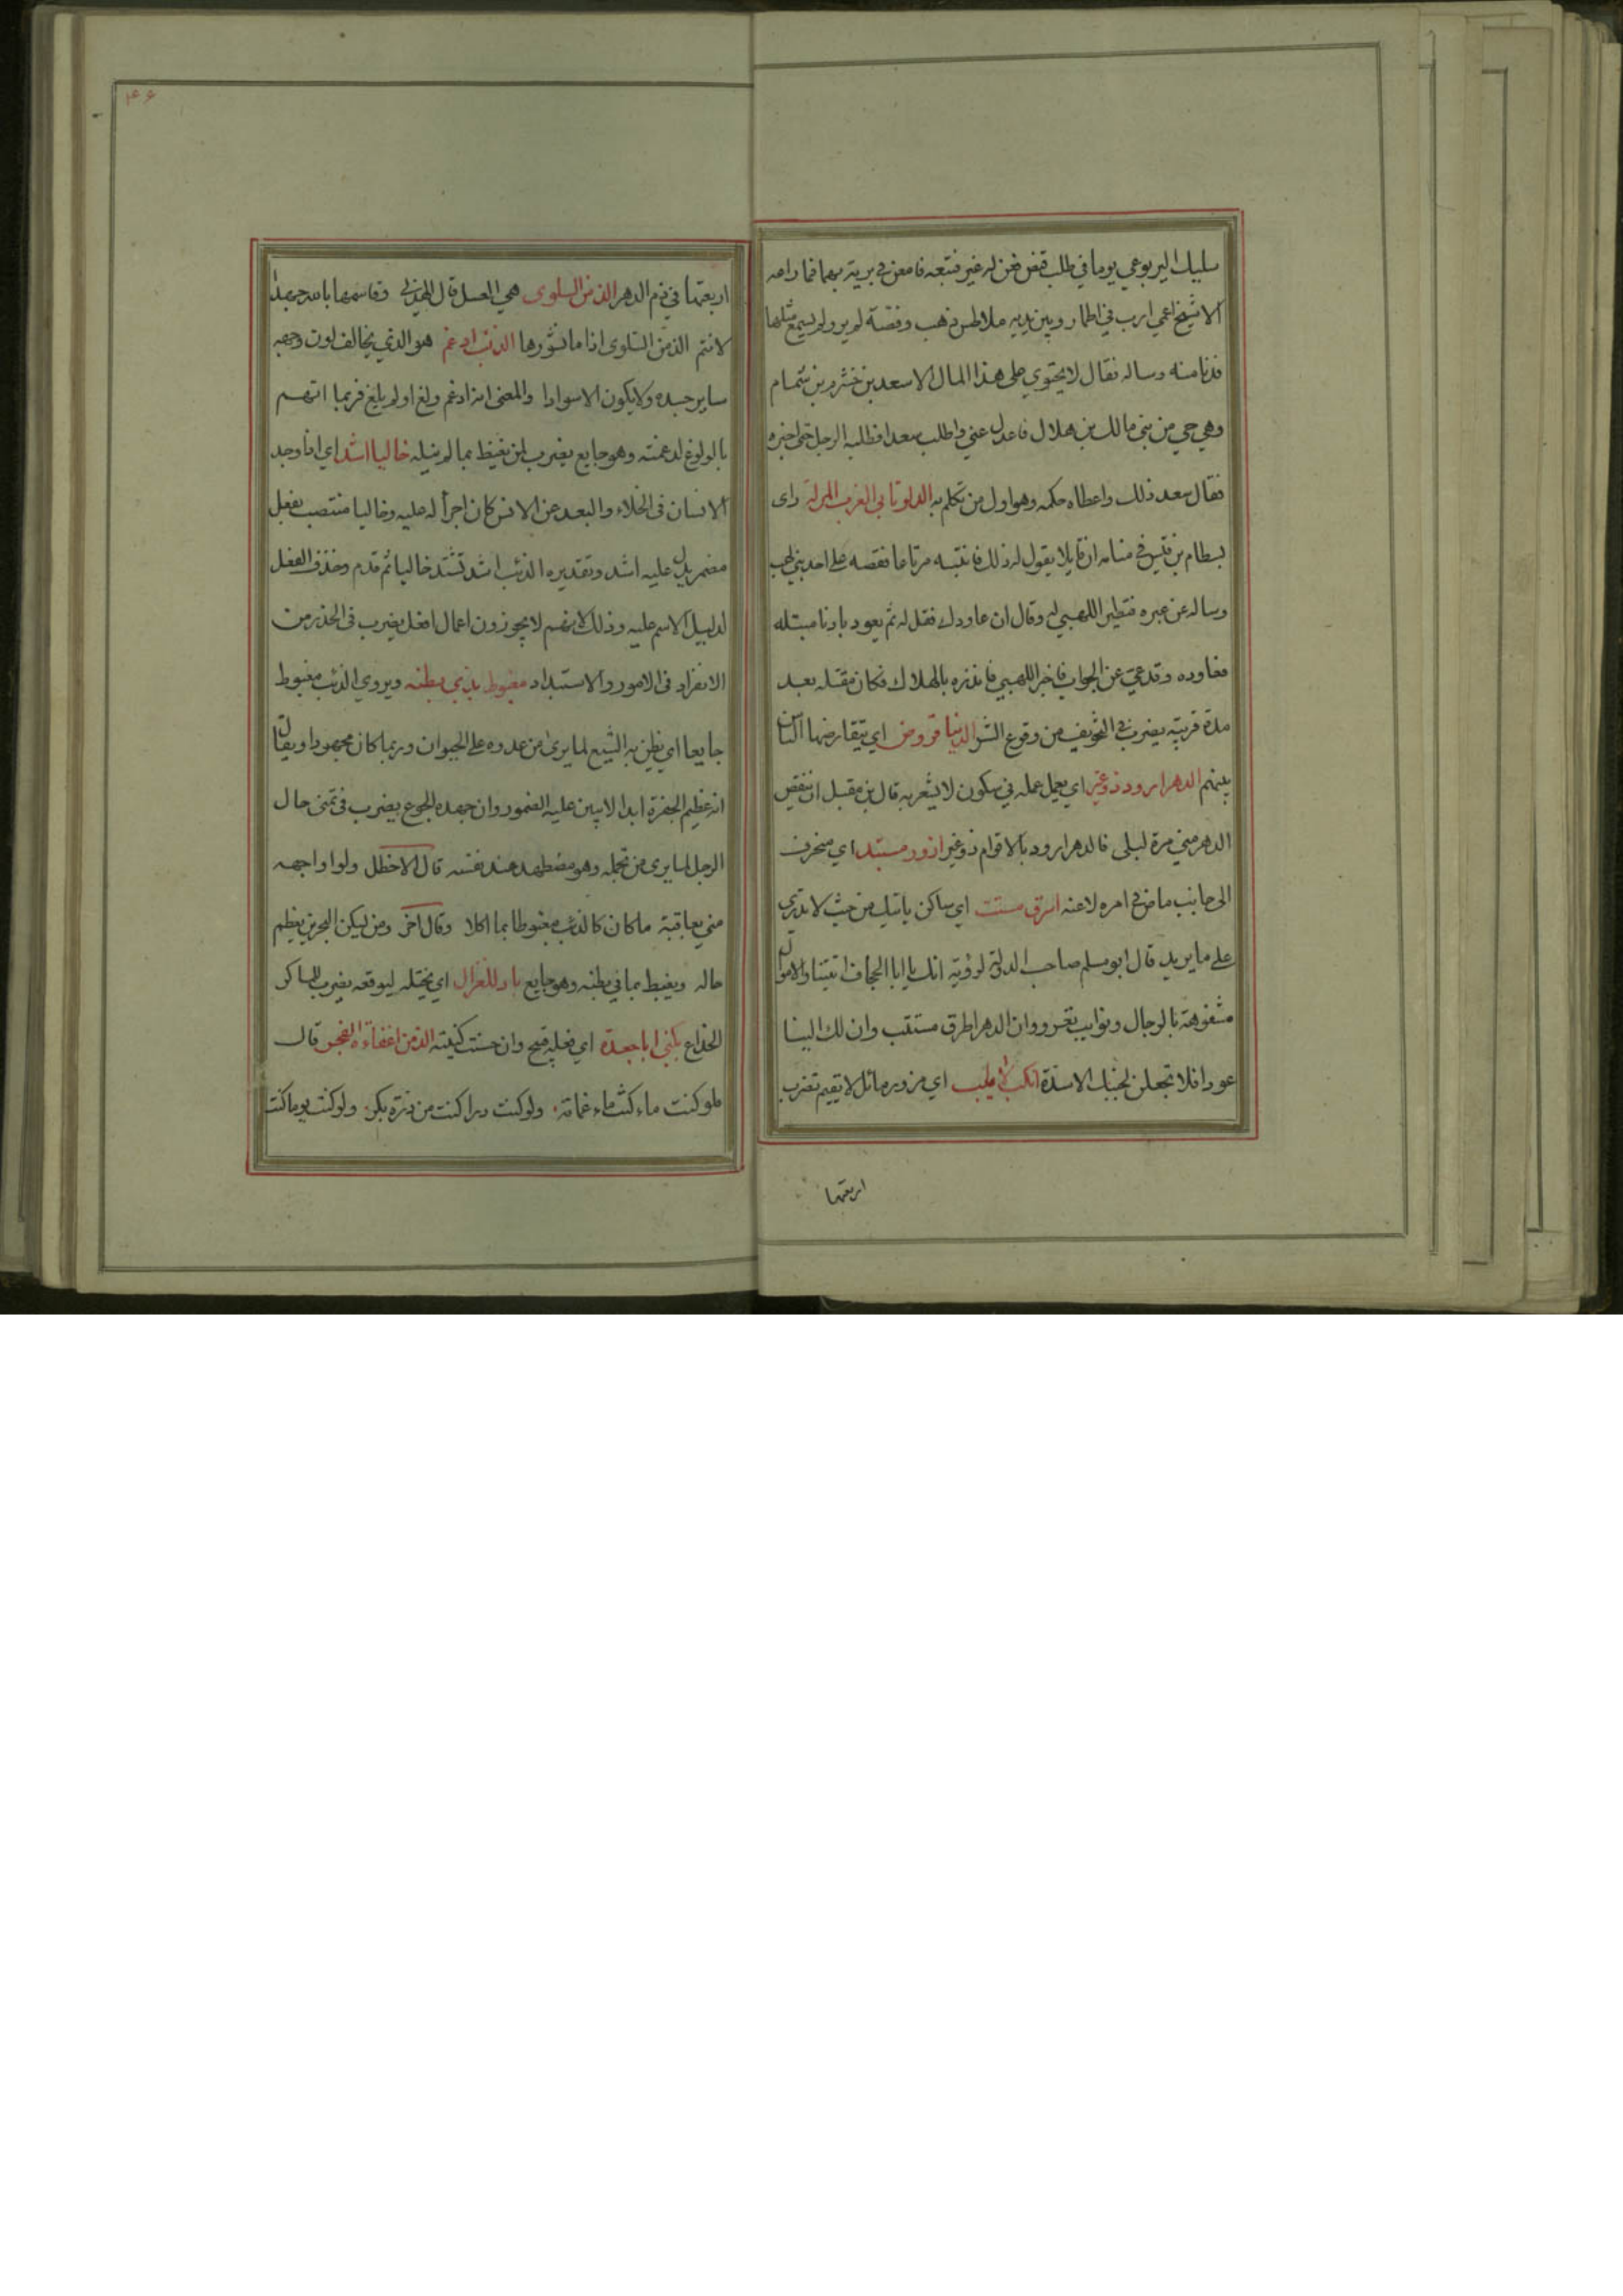 سليك اليربوعي يوما في طلب قنص فعن له عير فتبعه فامعن في برية يهما فما راعه
الا شيخ اعمي ارب في اطمار وبين يديه ملاطس ذهب وفضة لم ير ولم يسمع مثلها
فدنا منه وساله فقال لا يحتوي على هذا المال الا سعد بن خشرم بن شمام
وهي حي من بني مالك بن هلال فاعدل عني واطلب سعدا فطلبه الرجل حتى اخبره
فقال سعد ذلك واعطاه حكمه وهو اول من تكلم به الدلو تاتي الغرب المزلة راى
بسطام بن قيس في منامه ان قايلا يقول له ذلك فانتبه مرتاعا فقصه على احد بني لهب
وساله عن عبره فتطير اللهبي له وقال ان عاودك فقل له ثم يعود بادنا مبتله
فعاوده وقد عي عن الجواب فاخبر اللهبي فانذره بالهلاك فكان مقتله بعد
مدة قريبة يضرب في التخويف من وقوع الشر الدنيا قروض اي يتقارضها الناس
بينهم الدهر ارود ذو غير اي يعمل عمله في سكون لا يشعر به قال بن مقبل ان ينقض
الدهر مني مرة لبلى فالدهر ارود بالاقوام ذو غير ازور مستبد اي منحرف
الى جانب ماض في امره لاعنه اطرق مستتب اي ساكن ياتيك من حيث لا تدري
على ما يريد قال ابو مسلم صاحب الدولة لرؤبة انك يا ابا الجحاف اتيتنا والاموال
مشفوهة بالرجال ونوايب تعرو وان الدهر اطرق مستتب وان لك الينا
عودا فلا تجعلن لجنبك الاسدة انكب لا يلب اي مزور مائل لا يقيم تضرب
اربعتها
۴۶
اربعتها في ذم الدهر الذ من السلوى هي العسل قال الهذلي وقاسمها بالله جهدا
لانتم الذ من السلوى اذا ما نشورها الذئب ادغم هو الذي يخالف لون وجهه
ساير جسده ولا يكون الا سوادا والمعنى انه ادغم ولغ او لم يلغ فربما اتهم
بالولوغ لدغمته وهو جايع يضرب لمن يغبط بما لم ينله خاليا اشد اي اذا وجد
الانسان في الخلاء والبعد عن الانس كان اجرأ له عليه وخاليا منتصب بفعل
مضمر يدل عليه اشد وتقديره الذئب اشد تشتد خاليا ثم قدم وحذف الفعل
لدليل الاسم عليه وذلك لانهم لا يجوزون اعمال افعل يضرب في الحذر من
الانفراد في الامور والاستبداد مغبوط بذي بطنه ويروي الذئب مغبوط
جايعا اي يظن به الشبع لما يرى من عدوه على الحيوان وربما كان مجهودا ويقال
انه عظيم الجفرة ابدا لا يبين عليه الضمور وان جهده الجوع يضرب في تمني حال
الرجل لما يرى من تجمله وهو مضطهد عند نفسه قال الاخطل ولو اواجهه
مني بعاقبة ماكان كالذئب مغبوطا بما اكلا وقال آخر ومن يسكن البحرين يعظم
طحاله ويغبط بما في بطنه وهو جايع يادو للغزال اي يختله ليوقعه يضرب للماكر
الخداع يكنى ابا جعدة اي فعله قبيح وان حسنت كنيته الذ من اغفاءة الفجر قال
فلو كنت ماء كنت ماء غمامة ولو كنت درا كنت من درة بكر ولو كنت يوما كنت